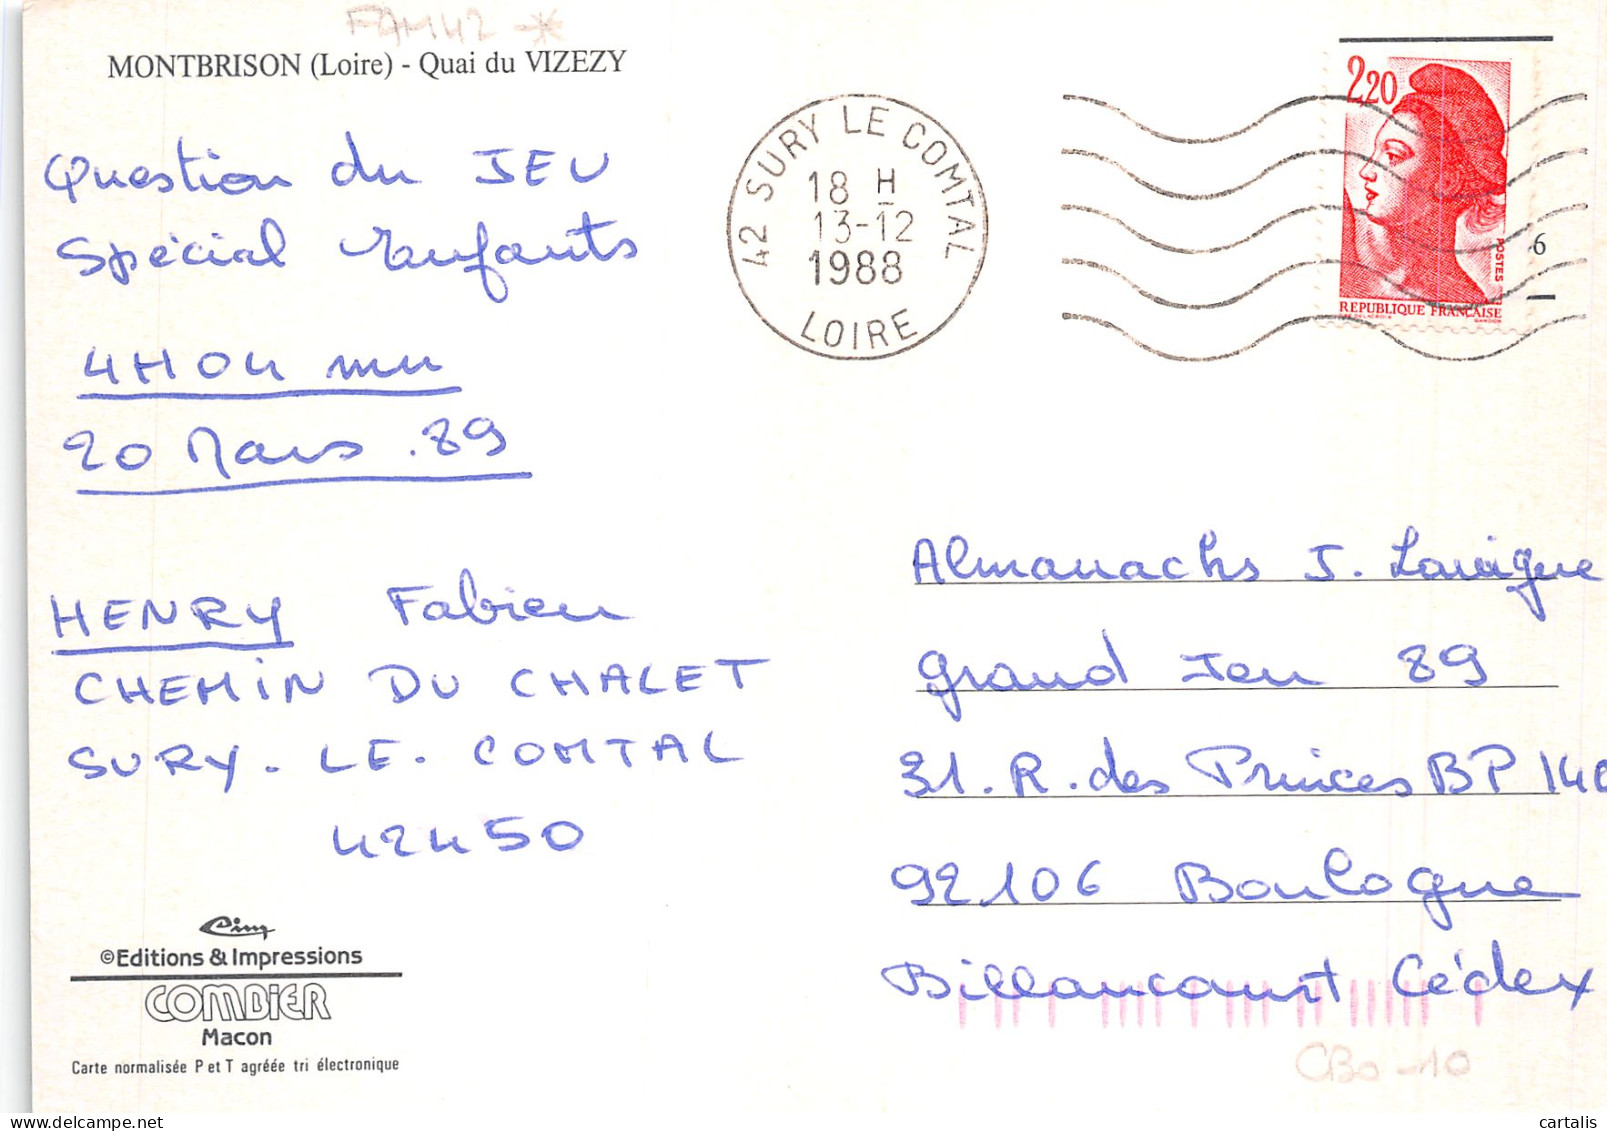 FAM42 *
MONTBRISON (Loire) - Quai du VIZEZY
Question du JEU
Spécial enfants
4H04 mn
20 Mars .89
HENRY Fabien
CHEMIN DU CHALET
SURY. LE. COMTAL
42450
Cim
©Editions & Impressions
COMBIER
Macon
Carte normalisée P et T agréée tri électronique
42 SURY LE COMTAL
18 H
13-12
1988
LOIRE
2,20
POSTES
6
REPUBLIQUE FRANÇAISE
Almanachs J. Lavigne
Grand Jeu 89
31. R. des Princes BP 140
92106 Boulogne
Billancourt Cédex
CB0 -10
cartalis